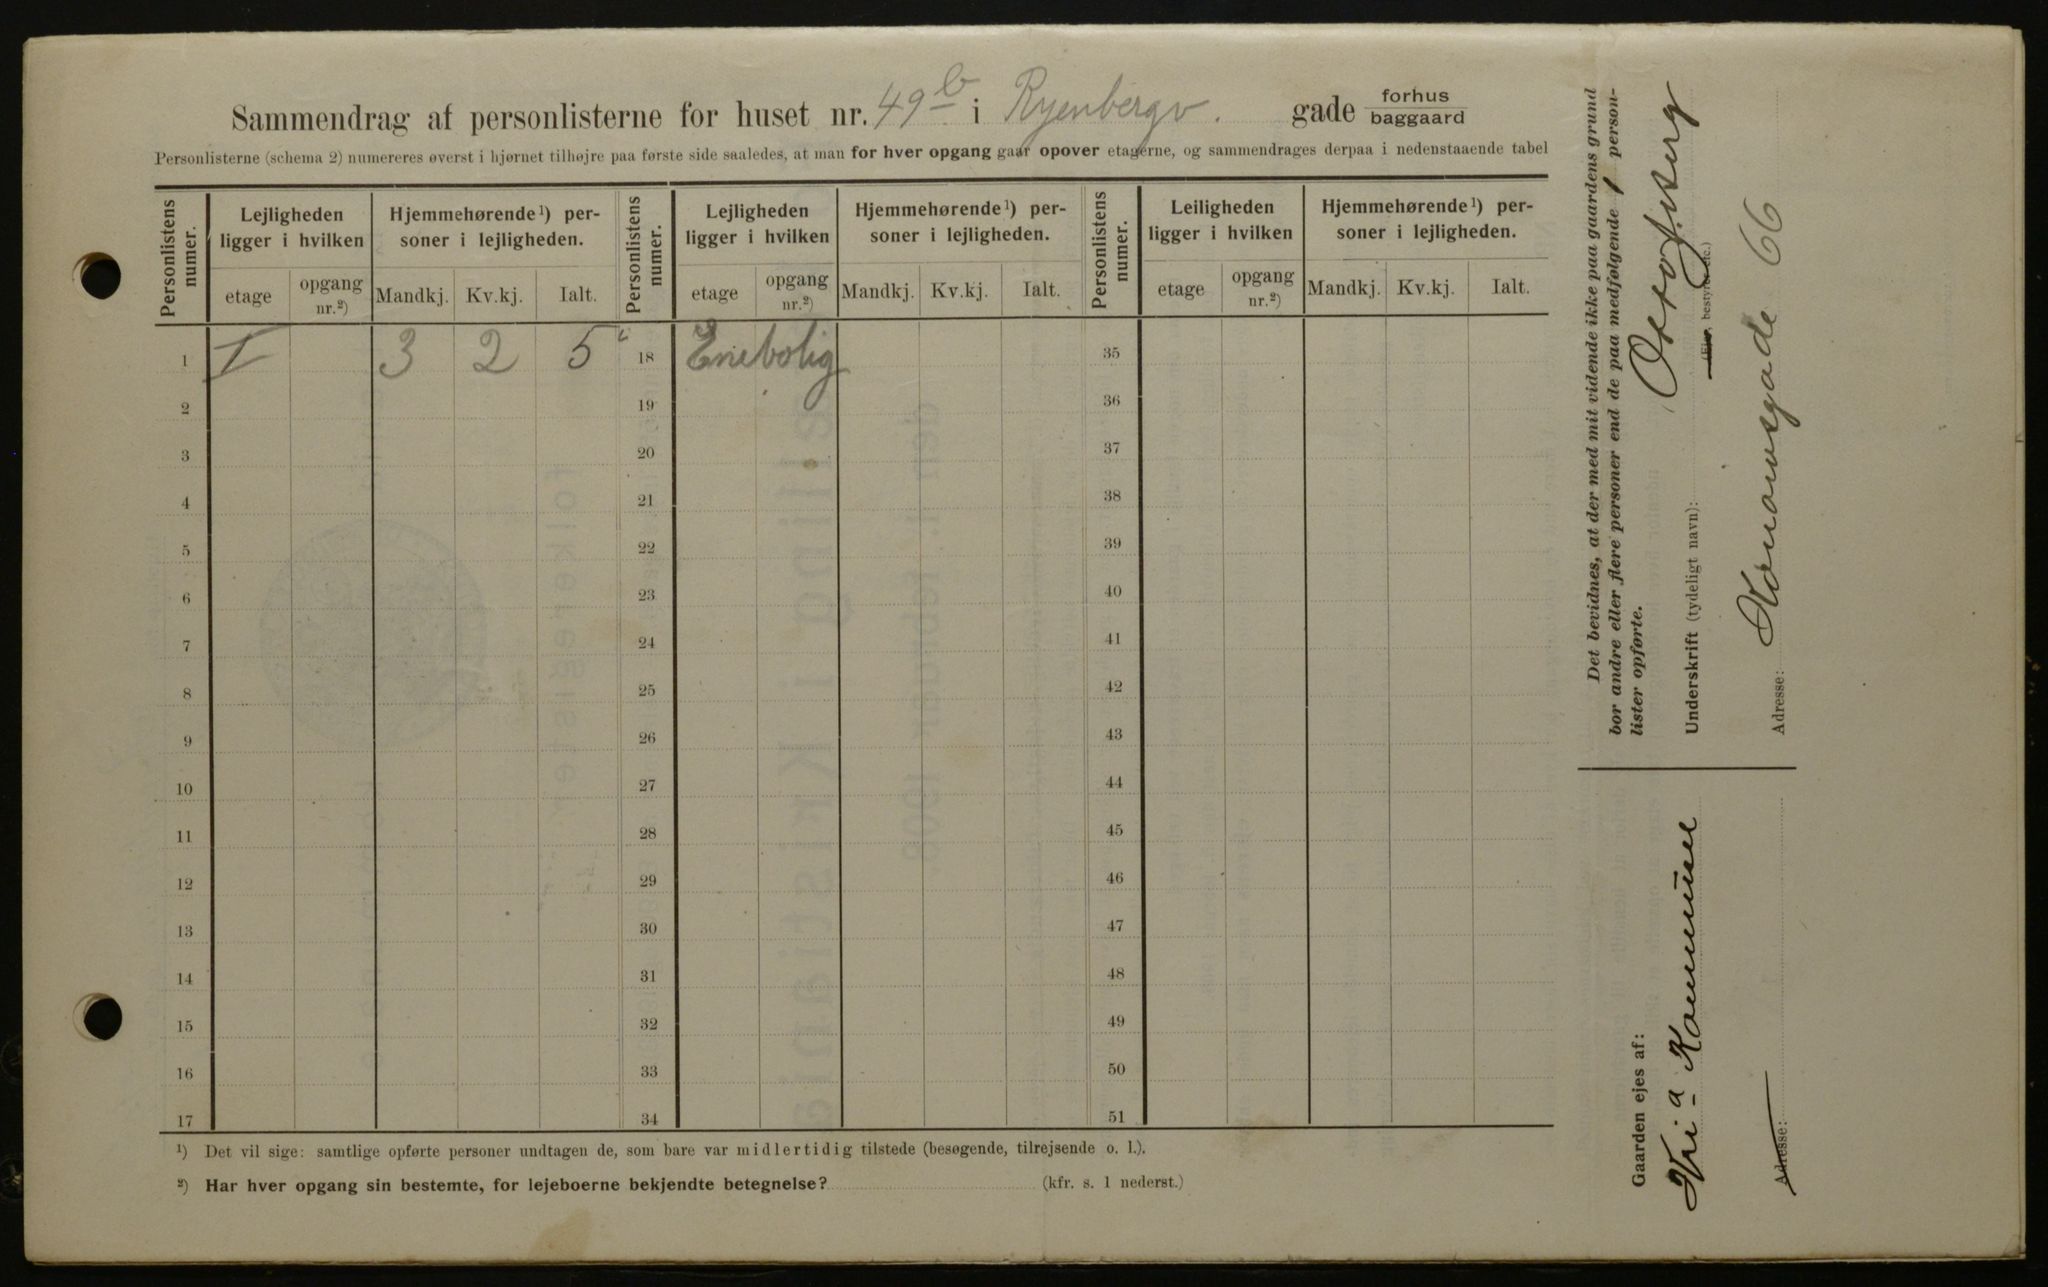 Sammendrag af personlisterne for huset nr. 49b i Ryenbergv. gade forhus baggaard
Personlisterne (schema 2) numereres øverst i hjørnet tilhøjre paa første side saaledes, at man for hver opgang gaar opover etagerne, og sammendrages derpaa i nedenstaaende tabel
Personlistens numer. Lejligheden ligger i hvilken Hjemmehørende¹) personer i lejligheden. Personlistens numer. Lejligheden ligger i hvilken Hjemmehørende¹) personer i lejligheden. Personlistens numer. Leiligheden ligger i hvilken Hjemmehørende¹) personer i lejligheden.
etage opgang nr.²) Mandkj. Kv.kj. Ialt. etage opgang nr.²) Mandkj. Kv.kj. Ialt. etage opgang nr.²) Mandkj. Kv.kj. Ialt.
1 I 3 2 5 18 Enebolig 35
2 19 36
3 20 37
4 21 38
5 22 39
6 23 40
7 24 41
8 25 42
9 26 43
10 27 44
11 28 45
12 29 46
13 30 47
14 31 48
15 32 49
16 33 50
17 34 51
¹) Det vil sige: samtlige opførte personer undtagen de, som bare var midlertidig tilstede (besøgende, tilrejsende o. l.).
²) Har hver opgang sin bestemte, for lejeboerne bekjendte betegnelse? (kfr. s. 1 nederst.)
Det bevidnes, at der med mit vidende ikke paa gaardens grund
bor andre eller flere personer end de paa medfølgende 1 person-
lister opførte.
Underskrift (tydeligt navn):
(Ejer, bestyrer etc.)
Adresse: 66
Gaarden ejes af:
Kri-a Kommune
Adresse: